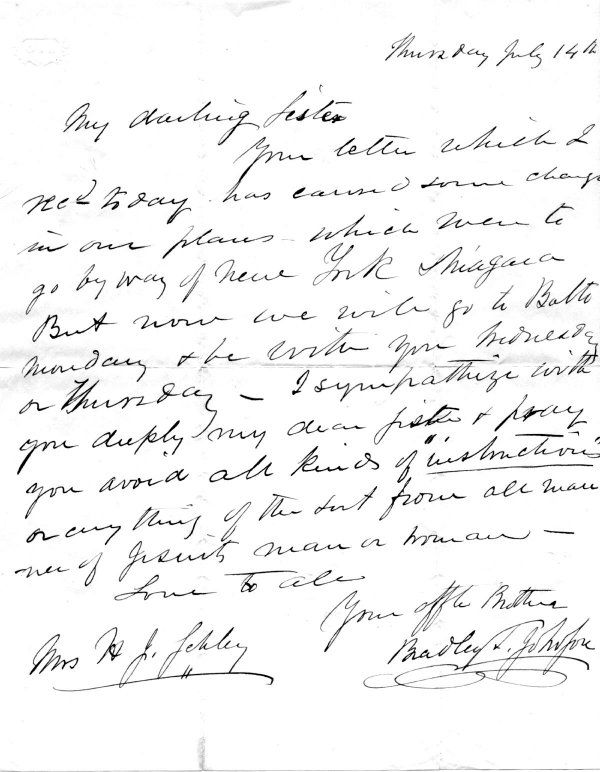 Thursday July 14th
My darling Sister
Your letter which I
recd today has caused some change
in our plans - which were to
go by way of New York & Niagara
But now we will go to Balto
Monday & be with you Wednesday
or Thursday - I sympathize with
you deeply my dear sister & pray
you avoid all kinds of "instructions"
or any thing of the sort from all man
ner of Jesuits man or woman -
Love to all
Your affte Brother
Bradley T. Johnson
Mrs H J. Schley